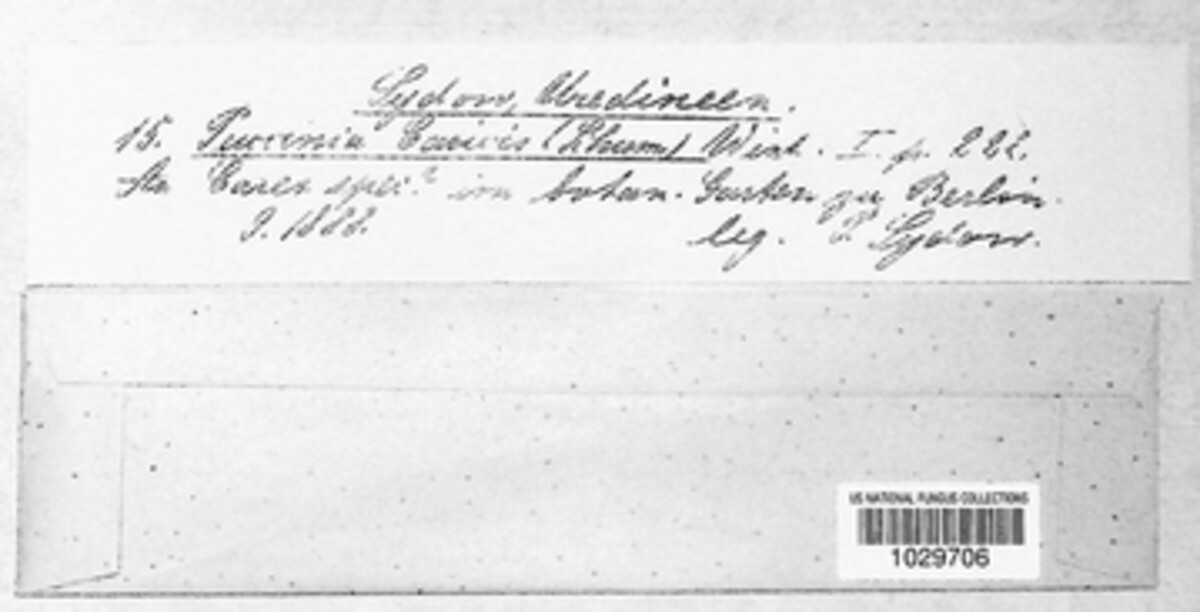 Sydow, Uredineen.
15. Puccinia Caricis (Schum.) Wint. I. p. 222.
An Carex spec.? im botan. Garten zu Berlin.
9. 1888. leg. P. Sydow.
US NATIONAL FUNGUS COLLECTIONS
1029706